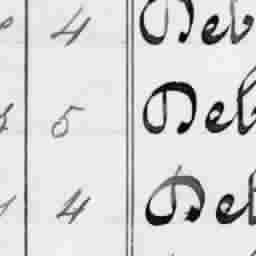 4 Deb
5 Deb
4 Deb